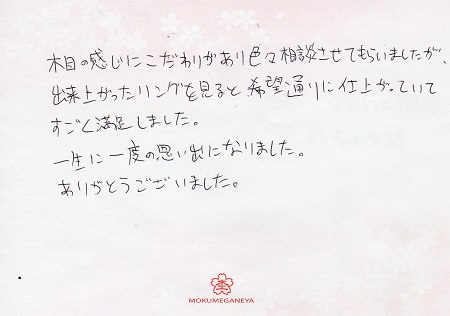 木目の感じにこだわりがあり色々相談させてもらいましたが、
出来上がったリングを見ると希望通りに仕上がっていて
すごく満足しました。
一生に一度の思い出になりました。
ありがとうございました。
MOKUMEGANEYA